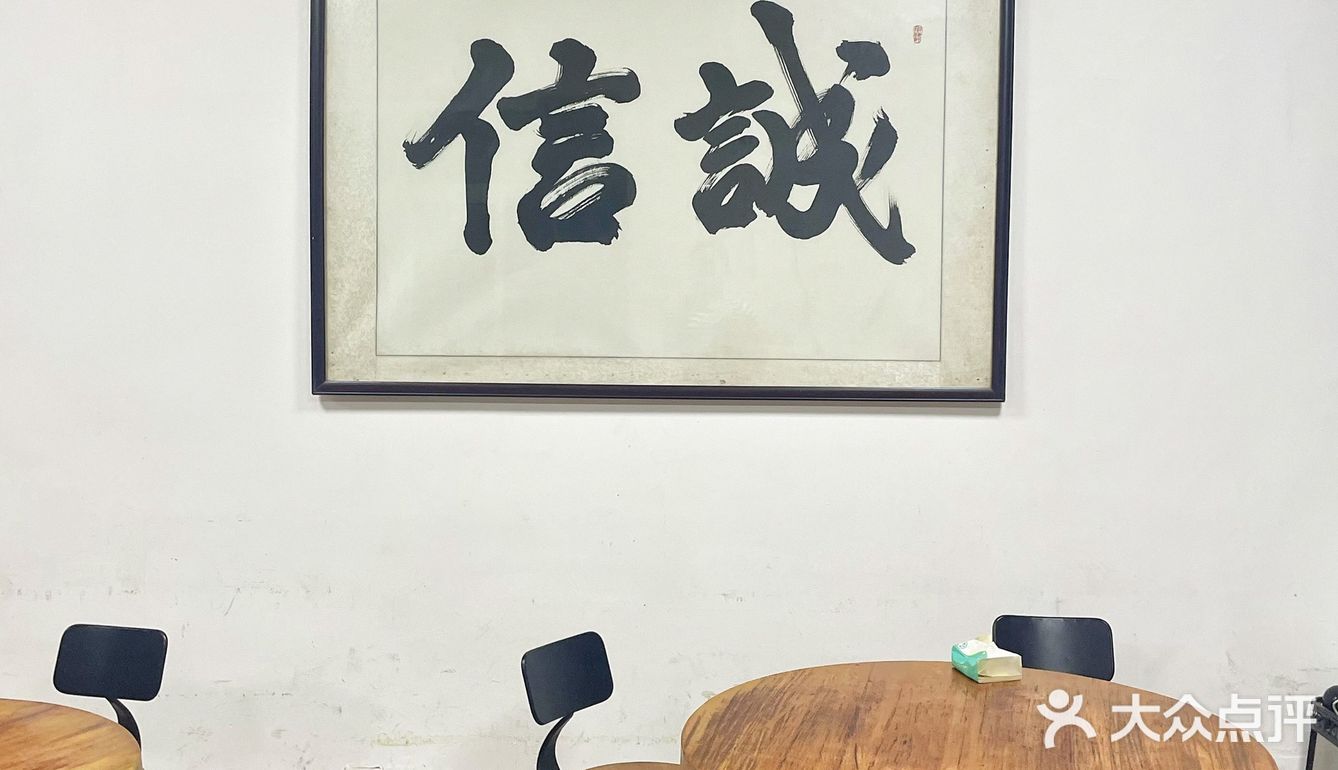 誠信
大众点评